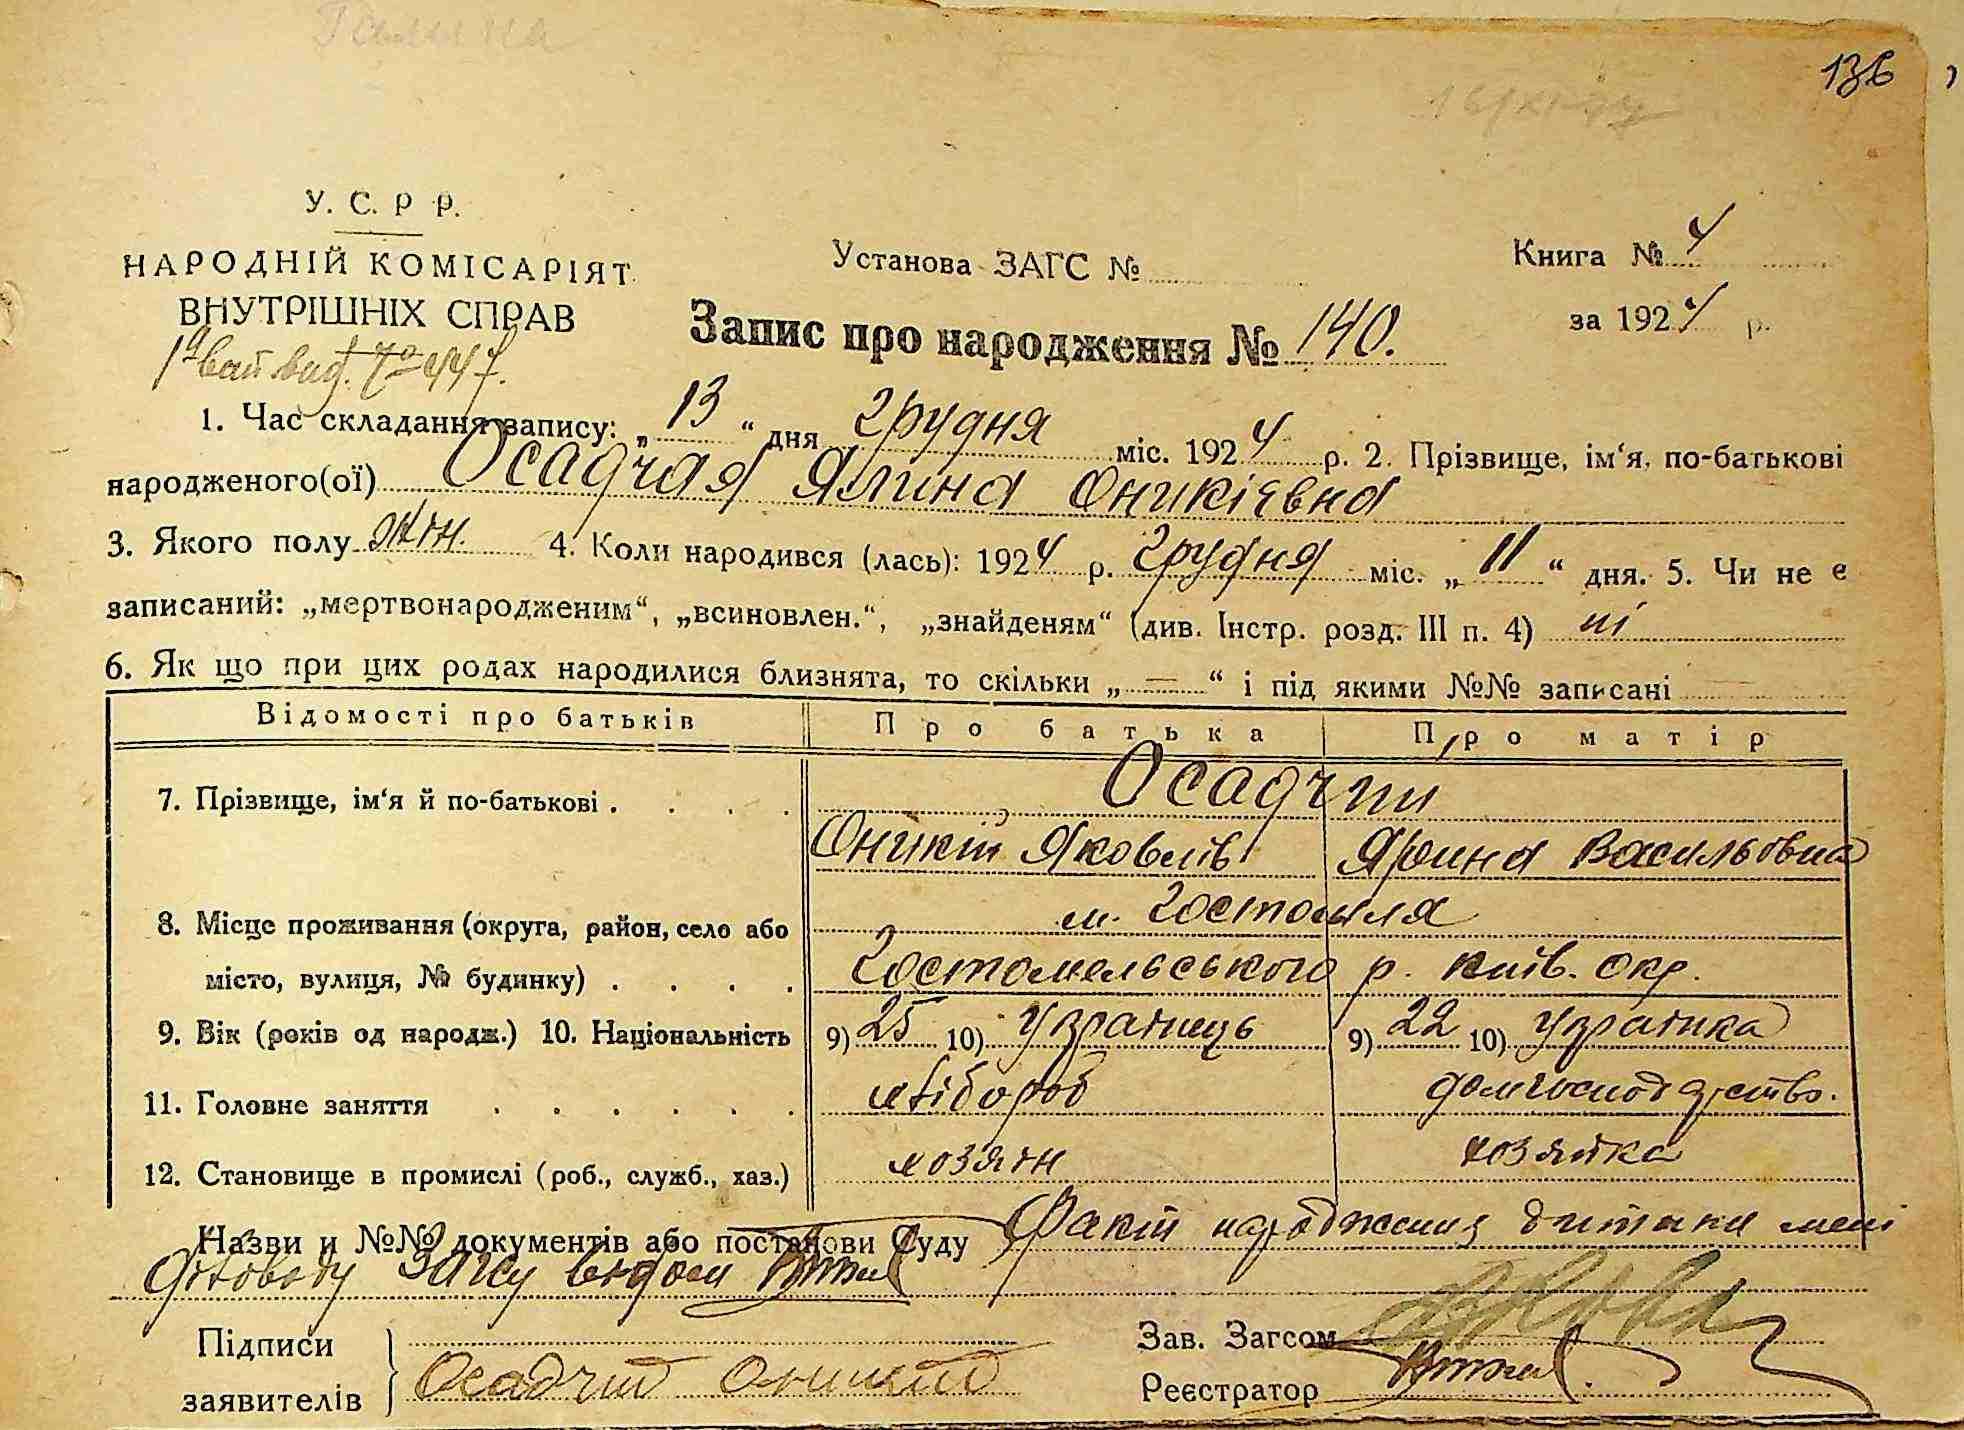 Галина
136
У. С. Р Р.
НАРОДНІЙ КОМІСАРІЯТ
ВНУТРІШНІХ СПРАВ
Установа ЗАГС №
Книга № 4
за 1924 р.
Запис про народження № 140.
1. Час складання запису: „13“ дня грудня міс. 1924 р. 2. Прізвище, ім‘я, по-батькові
народженого(ої) Осадчая Ялина Оникієвна
3. Якого полу жін. 4. Коли народився (лась): 1924 р. грудня міс. „11“ дня. 5. Чи не є
записаний: „мертвонародженим“, „всиновлен.“, „знайденям“ (див. Інстр. розд. III п. 4) ні
6. Як що при цих родах народилися близнята, то скільки „—“ і під якими №№ записані —
Відомості про батьків Про батька Про матір
7. Прізвище, ім‘я й по-батькові . . . . Осадчий
Оникій Яковлів Ярина Васильовна
8. Місце проживання (округа, район, село або м. Гостомля
місто, вулиця, № будинку) . . . . Гостомельського р. Київ. окр.
9. Вік (років од народж.) 10. Національність 9) 25 10) Українець 9) 22 10) Українка
11. Головне заняття . . . . . . хлібороб домгосподарство.
12. Становище в промислі (роб., служб., хаз.) хозяїн хозяйка
Назви и №№ документів або постанови Суду Факт народження дитини мені
діловоду Загсу відом
Підписи
заявителів
Осадчий Оникий
Зав. Загсом
Реєстратор